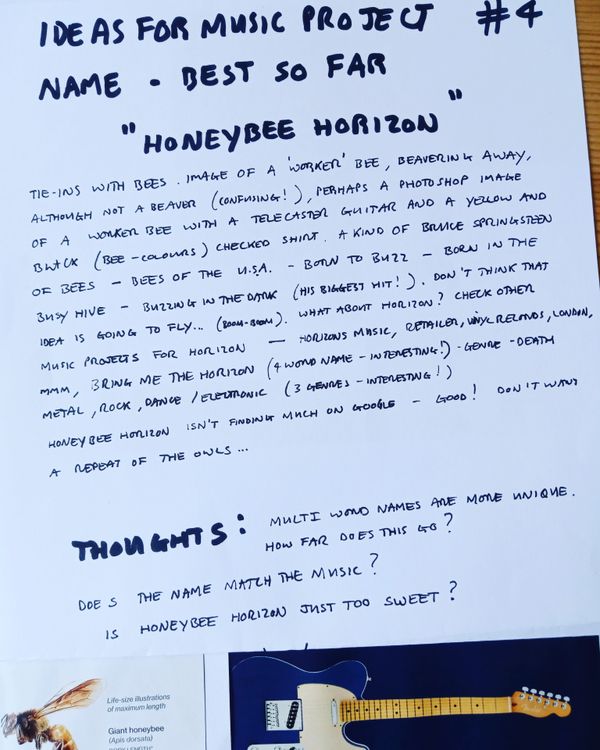 IDEAS FOR MUSIC PROJECT #4
NAME - BEST SO FAR
"HONEYBEE HORIZON"
TIE-INS WITH BEES. IMAGE OF A 'WORKER' BEE, BEAVERING AWAY,
ALTHOUGH NOT A BEAVER (CONFUSING!), PERHAPS A PHOTOSHOP IMAGE
OF A WORKER BEE WITH A TELECASTER GUITAR AND A YELLOW AND
BLACK (BEE-COLOURS) CHECKED SHIRT. A KIND OF BRUCE SPRINGSTEEN
OF BEES - BEES OF THE U.S.A. - BORN TO BUZZ - BORN IN THE
BUSY HIVE - BUZZING IN THE DARK (HIS BIGGEST HIT!). DON'T THINK THAT
IDEA IS GOING TO FLY... (BOOM-BOOM). WHAT ABOUT HORIZON? CHECK OTHER
MUSIC PROJECTS FOR HORIZON - HORIZONS MUSIC, RETAILER, VINYL RECORDS, LONDON,
MMM, BRING ME THE HORIZON (4 WORD NAME - INTERESTING!) - GENRE - DEATH
METAL, ROCK, DANCE/ELECTRONIC (3 GENRES - INTERESTING!)
HONEYBEE HORIZON ISN'T FINDING MUCH ON GOOGLE - GOOD! DON'T WANT
A REPEAT OF THE OWLS...
THOUGHTS: MULTI WORD NAMES ARE MORE UNIQUE.
HOW FAR DOES THIS GO?
DOES THE NAME MATCH THE MUSIC?
IS HONEYBEE HORIZON JUST TOO SWEET?
Life-size illustrations
of maximum length
Giant honeybee
(Apis dorsata)